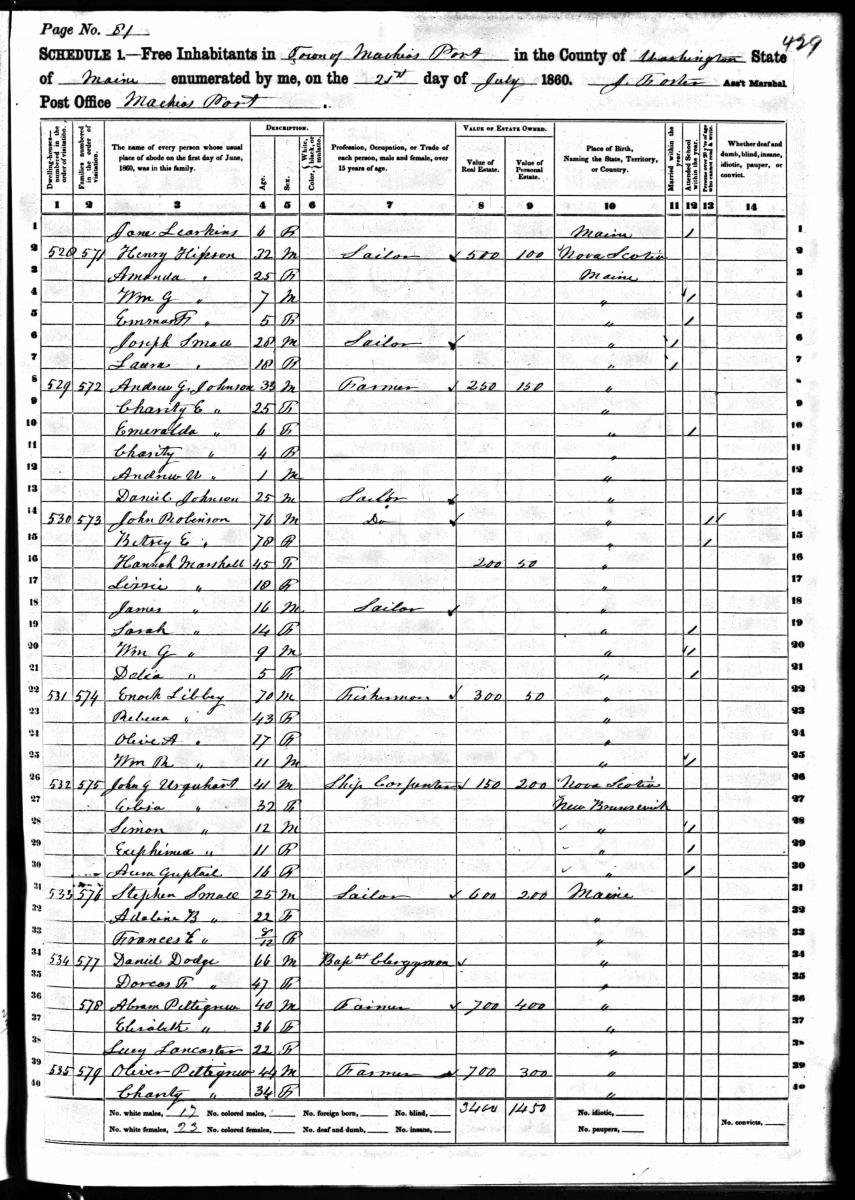 Page No. 81
429
SCHEDULE 1.—Free Inhabitants in Town of Machias Port in the County of Washington State
of Maine enumerated by me, on the 21st day of July 1860. J. Foster Ass't Marshal
Post Office Machias Port.
Dwelling-houses—numbered in the order of visitation. Families numbered in the order of visitation. The name of every person whose usual place of abode on the first day of June, 1860, was in this family. DESCRIPTION. Age. Sex. Color, White, black, or mulatto. Profession, Occupation, or Trade of each person, male and female, over 15 years of age. VALUE OF ESTATE OWNED. Value of Real Estate. Value of Personal Estate. Place of Birth, Naming the State, Territory, or Country. Married within the year. Attended School within the year. Persons over 20 y'rs of age who cannot read & write. Whether deaf and dumb, blind, insane, idiotic, pauper, or convict.
1 2 3 4 5 6 7 8 9 10 11 12 13 14
1 Jane Learkins 6 F Maine 1 1
2 528 571 Henry Hipson 32 M Sailor 500 100 Nova Scotia 2
3 Amanda " 25 F Maine 3
4 Wm G " 7 M " 1 4
5 Emma F " 5 F " 1 5
6 Joseph Small 28 M Sailor " 1 6
7 Laura " 18 F " 1 7
8 529 572 Andrew G. Johnson 33 M Farmer 250 150 " 8
9 Charity E " 25 F " 9
10 Emeralda " 6 F " 1 10
11 Charity " 4 F " 11
12 Andrew " 1 M " 12
13 Daniel Johnson 25 M Sailor " 13
14 530 573 John Robinson 76 M Do " 1 14
15 Betsey E " 78 F " 1 15
16 Hannah Marshall 45 F 200 50 " 16
17 Lizzie " 18 F " 17
18 James " 16 M Sailor " 18
19 Sarah " 14 F " 1 19
20 Wm G " 9 M " 1 20
21 Delia " 5 F " 1 21
22 531 574 Enoch Libbey 70 M Fisherman 300 50 " 22
23 Rebecca " 43 F " 23
24 Olive A " 17 F " 24
25 Wm " 11 M " 1 25
26 532 575 John G Urquhart 41 M Ship Carpenter 150 200 Nova Scotia 26
27 " 32 F New Brunswick 27
28 Simon " 12 M " 1 28
29 Exephimea " 11 F " 1 29
30 Guptail 16 F " 1 30
31 533 576 Stephen Small 25 M Sailor 600 200 Maine 31
32 Adaline B " 22 F " 32
33 Frances E " 8/12 F " 33
34 534 577 Daniel Dodge 66 M Baptist Clergyman " 34
35 Dorcas F " 47 F " 35
36 578 Abram Pettegrew 40 M Farmer 700 400 " 36
37 Elisabeth " 36 F " 37
38 Lucy Lancaster 22 F " 38
39 535 579 Oliver Pettegrew 44 M Farmer 700 300 " 39
40 Charity " 34 F " 40
No. white males, 17 No. colored males, No. foreign born, No. blind, 3400 1450 No. idiotic, No. convicts,
No. white females, 23 No. colored females, No. deaf and dumb, No. insane, No. paupers,